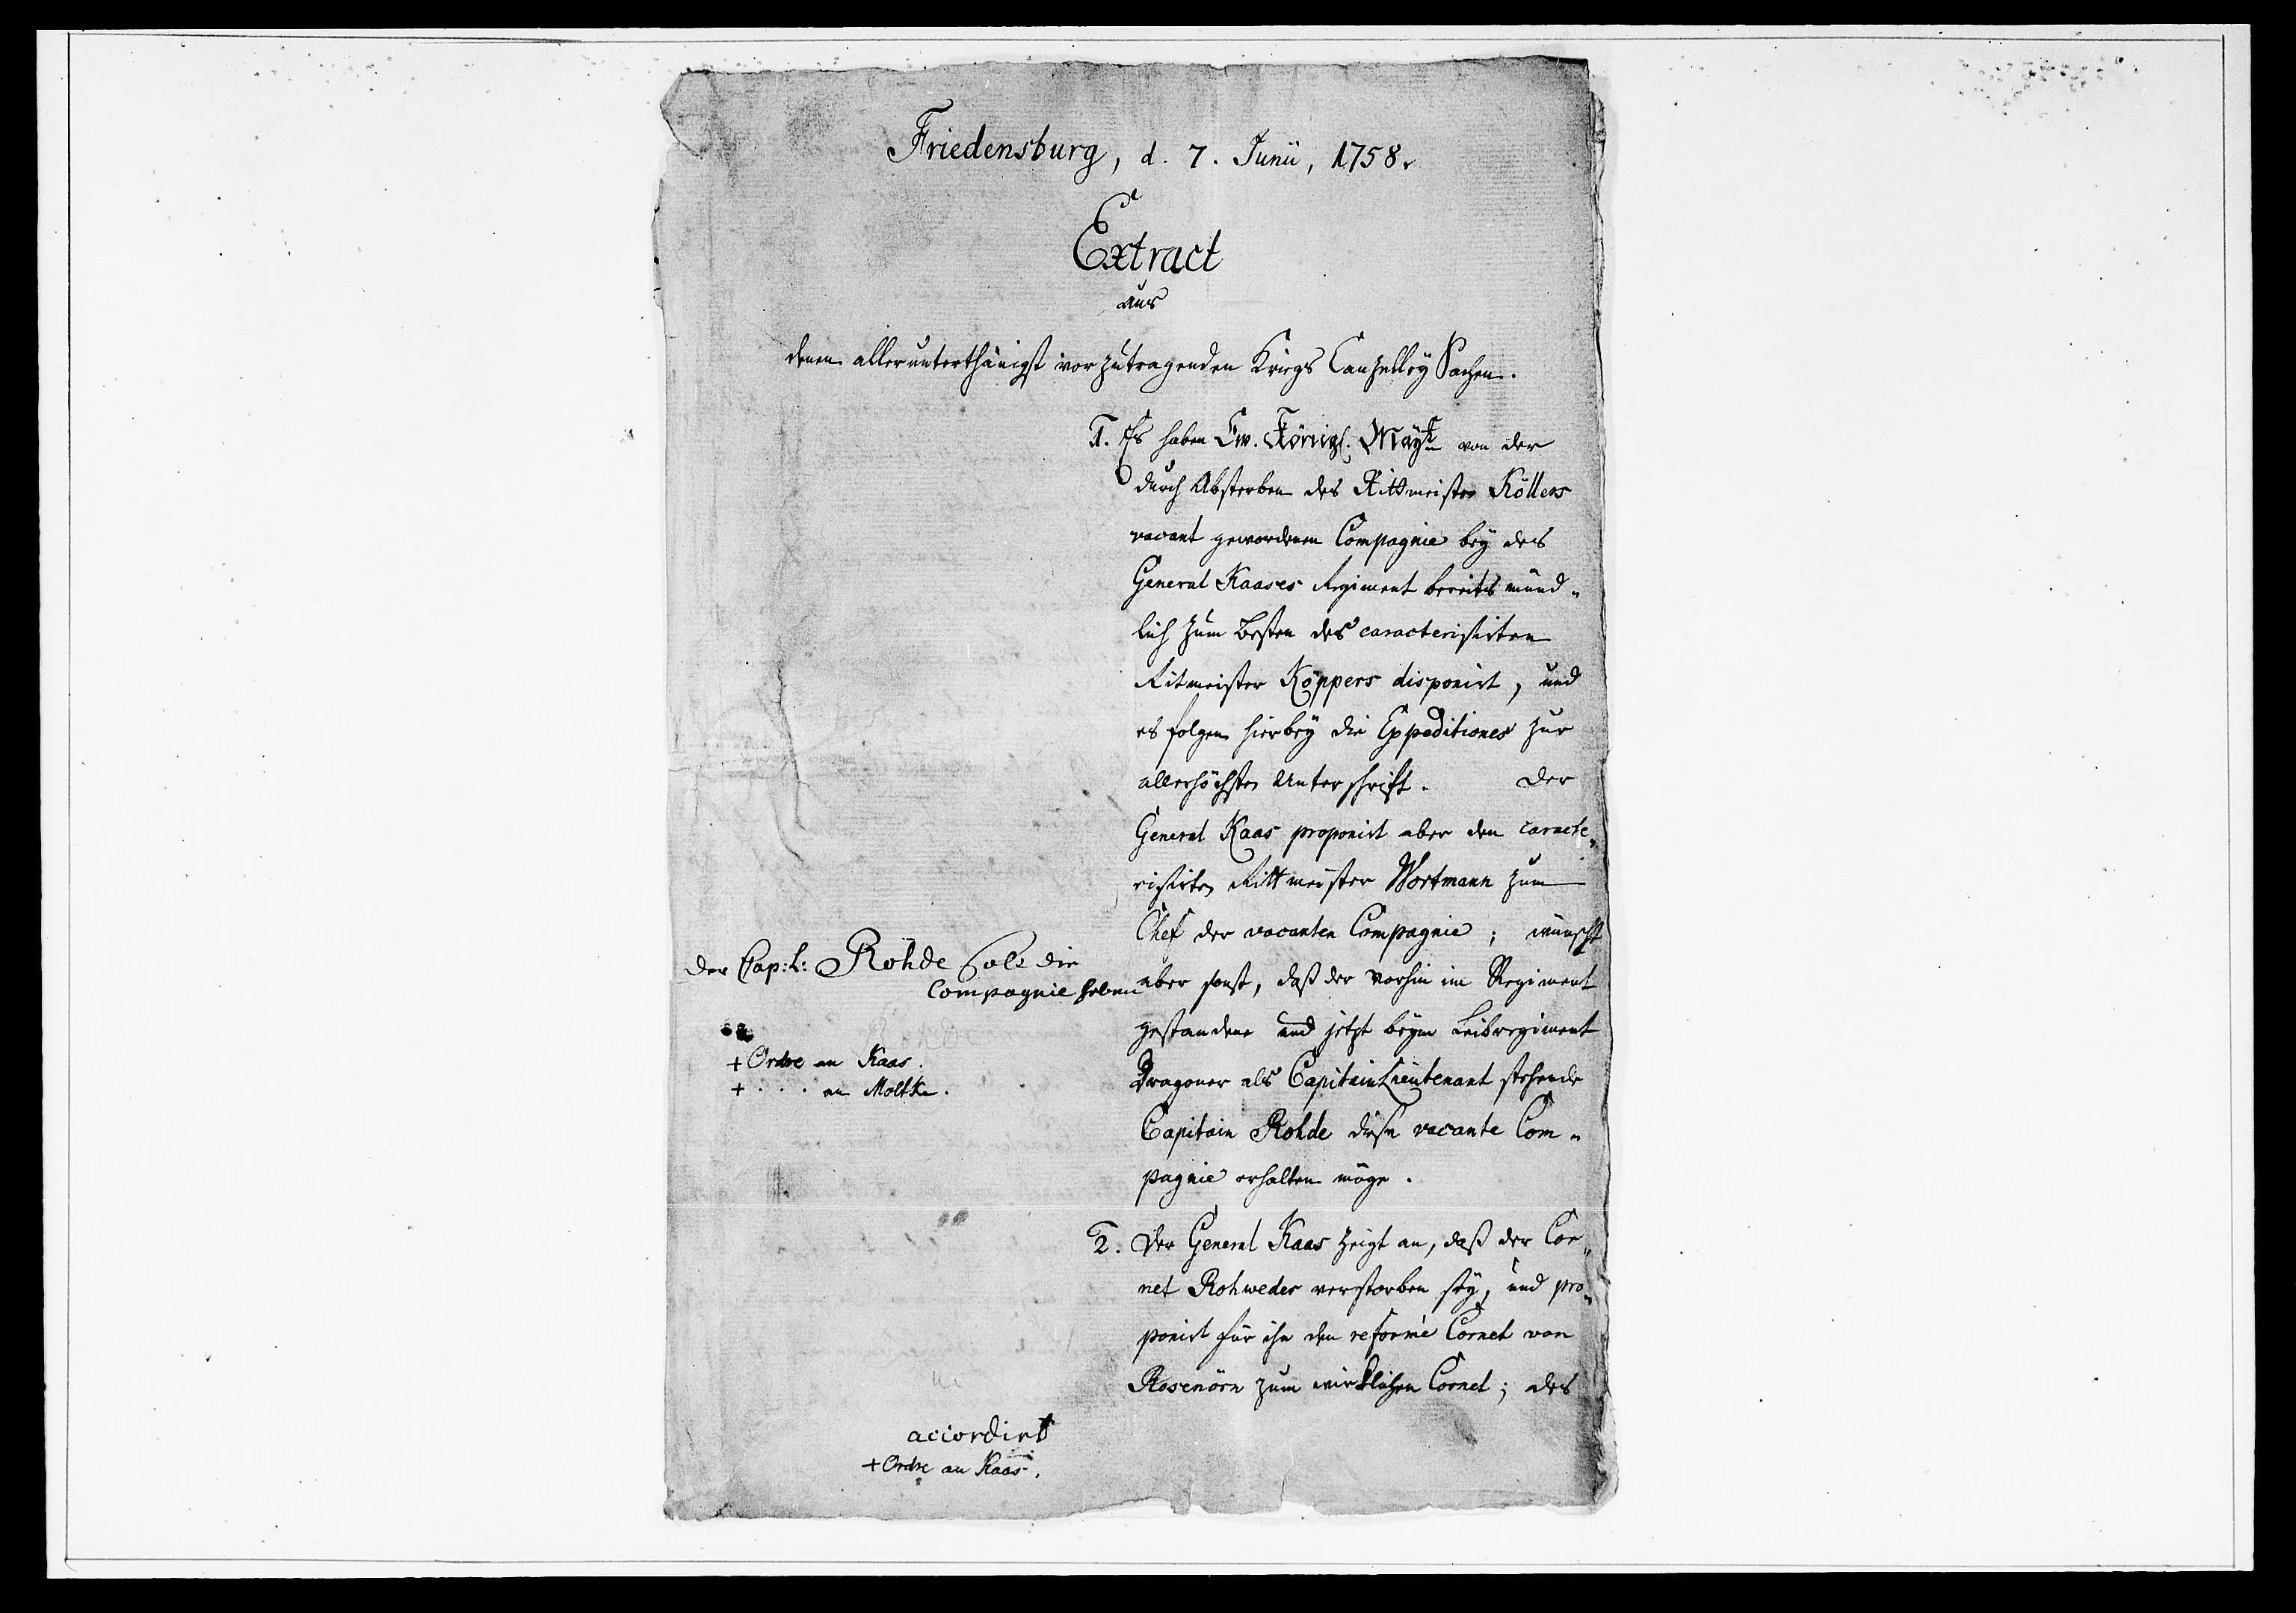 Friedensburg, d. 7. Junii, 1758.
Extract
aus
denen allerunterthänigst vorzutragenden Kriegs Cantzelley Sachen.
1. Es haben Ew. Königl. Mayt. von der
durch Absterben des Rittmeister Köllers
vacant gewordenen Compagnie bey des
General Kaases Regiment bereits münd„
lich zum Besten des caracterisirten
Ritmeister Köppers disponirt, und
es folgen hierbey die Expeditiones zur
allerhöchsten Unterschrift. Der
General Kaas proponirt aber den caracte„
risirten Rittmeister Wortmann zum
Chef der vacanten Compagnie; wünscht
aber sonst, daß der vorhin im Regiment
gestandene und jetzt beym Leibregiment
Dragoner als Capitain Lieutenant stehende
Capitain Rohde diese vacante Com„
pagnie erhalten möge.
Der Cap: L: Rohde sols die
Compagnie haben
+ Ordre an Kaas.
+ . . . an Moltke.
2. Der General Kaas zeigt an, daß der Cor„
net Rohweder verstorben sey, und pro„
ponirt für ihn den reformé Cornet von
Rosenörn zum wirklichen Cornet; des
accordirt
+ Ordre an Kaas.